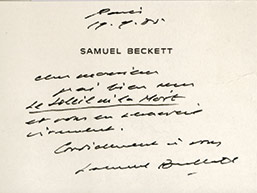 Paris
19.9.85
SAMUEL BECKETT
cher monsieur
j'ai bien reçu
Le Soleil ni la Mort
et vous en remercie
vivement.
Cordialement à vous
Samuel Beckett